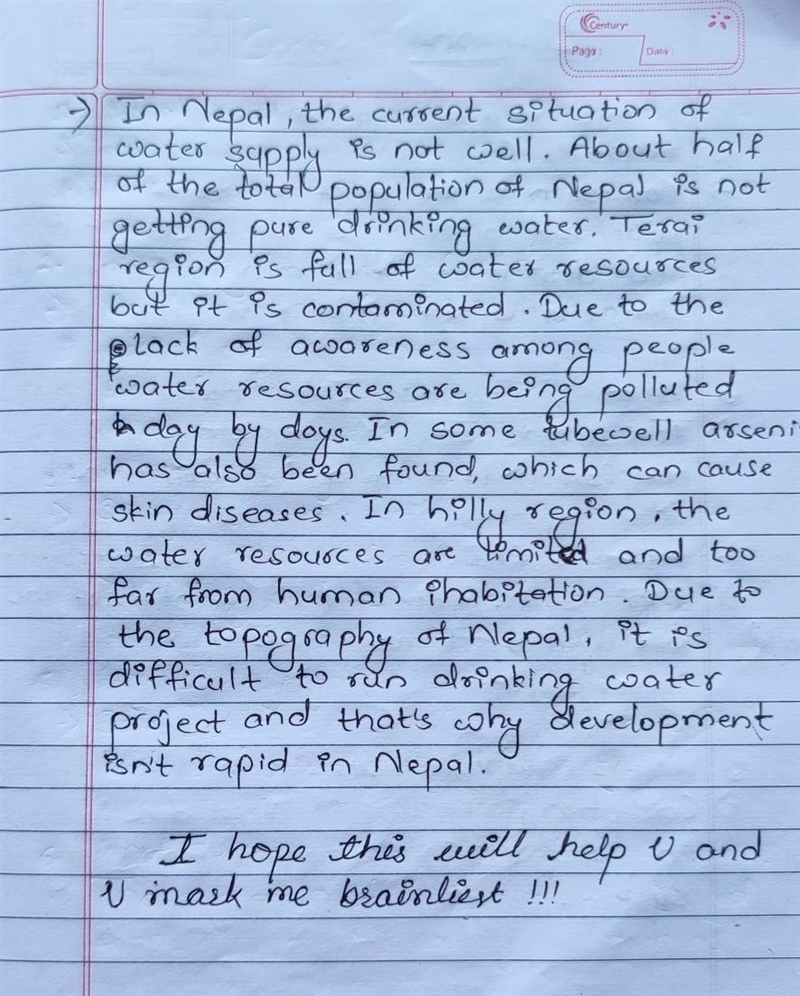 Century
Page: Date:
→ In Nepal, the current situation of
water sapply is not well. About half
of the total population of Nepal is not
getting pure drinking water. Terai
region is full of water resources
but it is contaminated. Due to the
lack of awareness among people
water resources are being polluted
day by days. In some tubewell arseni
has also been found, which can cause
skin diseases. In hilly region, the
water resources are limited and too
far from human ihabitation. Due to
the topography of Nepal, it is
difficult to run drinking water
project and that's why development
isn't rapid in Nepal.
I hope this will help U and
U mark me brainliest !!!